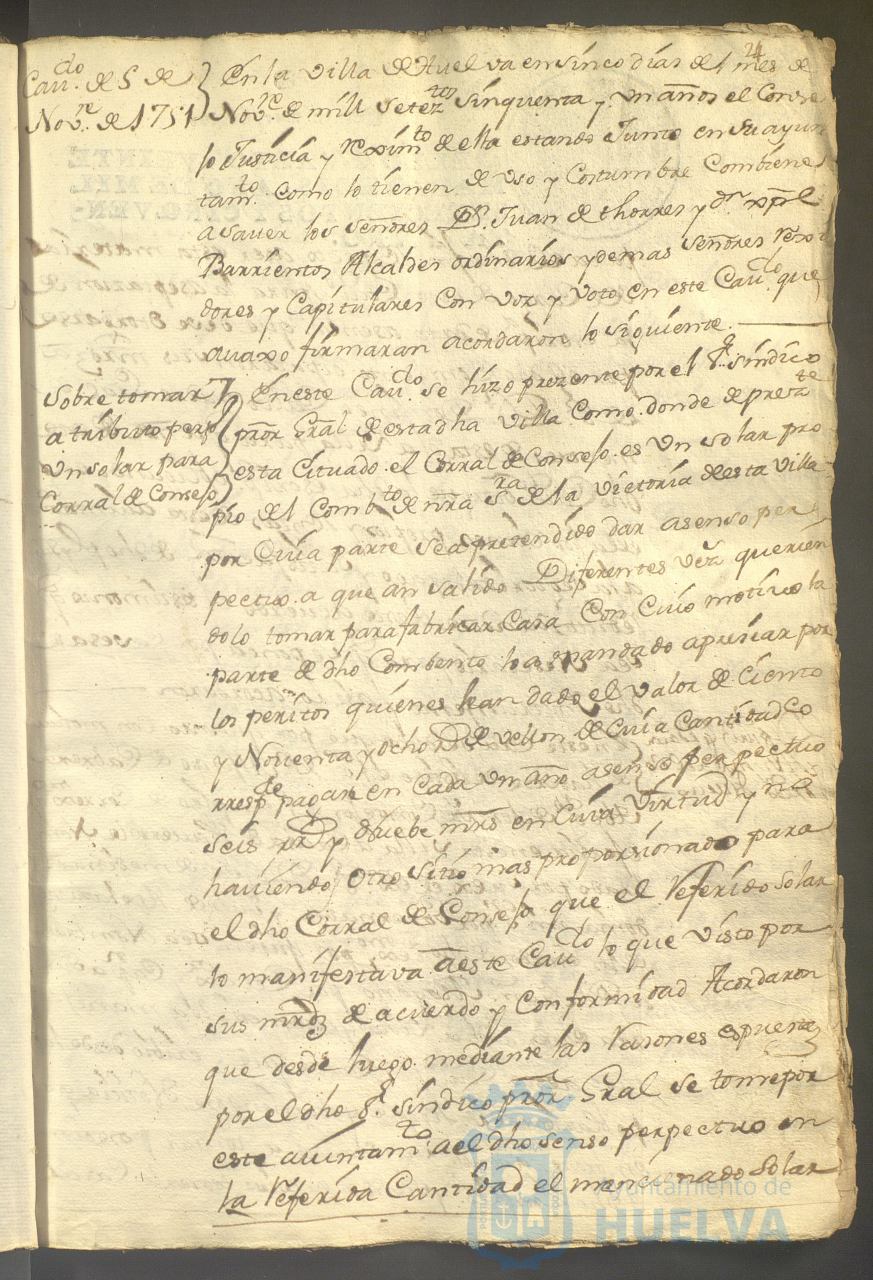 24
Cauildo. de 5 de
Nove. de 1751
En la Villa de Huelva en sinco dias del mes de
Nove. de mill setezto sinquenta y un años el Conse
jo Justicia y reximto de ella estando Junto en su ayun
tamto. como lo tienen de uso y Costumbre Combiene
a sauer los señores Dn. Juan de thorres y dn. xpl
Barrientos Alcaldes ordinarios y demas señores rexi
dores y Capitulares Con vox y voto en este Cauldo. que
auaxo firmaran acordaron lo siguiente.
Sobre tomar
a tributo perpo
un solar para
Corral de Consejo
En este Caudo. se hizo prezente por el sr. síndico
pror Gral de esta dha villa como donde de prezte
esta cituado el Corral de Consejo es un solar pro
pio del Combto de nra sra de la victoria de esta villa
por Cuia parte se a pretendido dar a senso per
pectuo a que an salido Diferentes vez querien
dolo tomar para fabricar Casa Con Cuio motiuo la
parte de dho Combento lo a mandado apresiar por
los peritos quienes lean dado el valor de Ciento
y Nouenta y ocho Ds de vellon de Cuia Cantidad co
rrespde pagar en cada un año a senso perpectuo
seis rrs y duebe mrs en Cuia virtud y no
hauiendo Otro sitio mas proporsionado para
el dho Corral de Consejo que el referido solar
lo manifestava a este Caudo lo que visto por
sus mrdz de acuerdo y Conformidad Acordaron
que desde luego mediante las rasones espuestas
por el dho sr. síndico pror Gral se tome por
este auintamto a el dho senso perpectuo en
la referida Cantidad el mencionado Solar
Ayuntamiento de
HUELVA